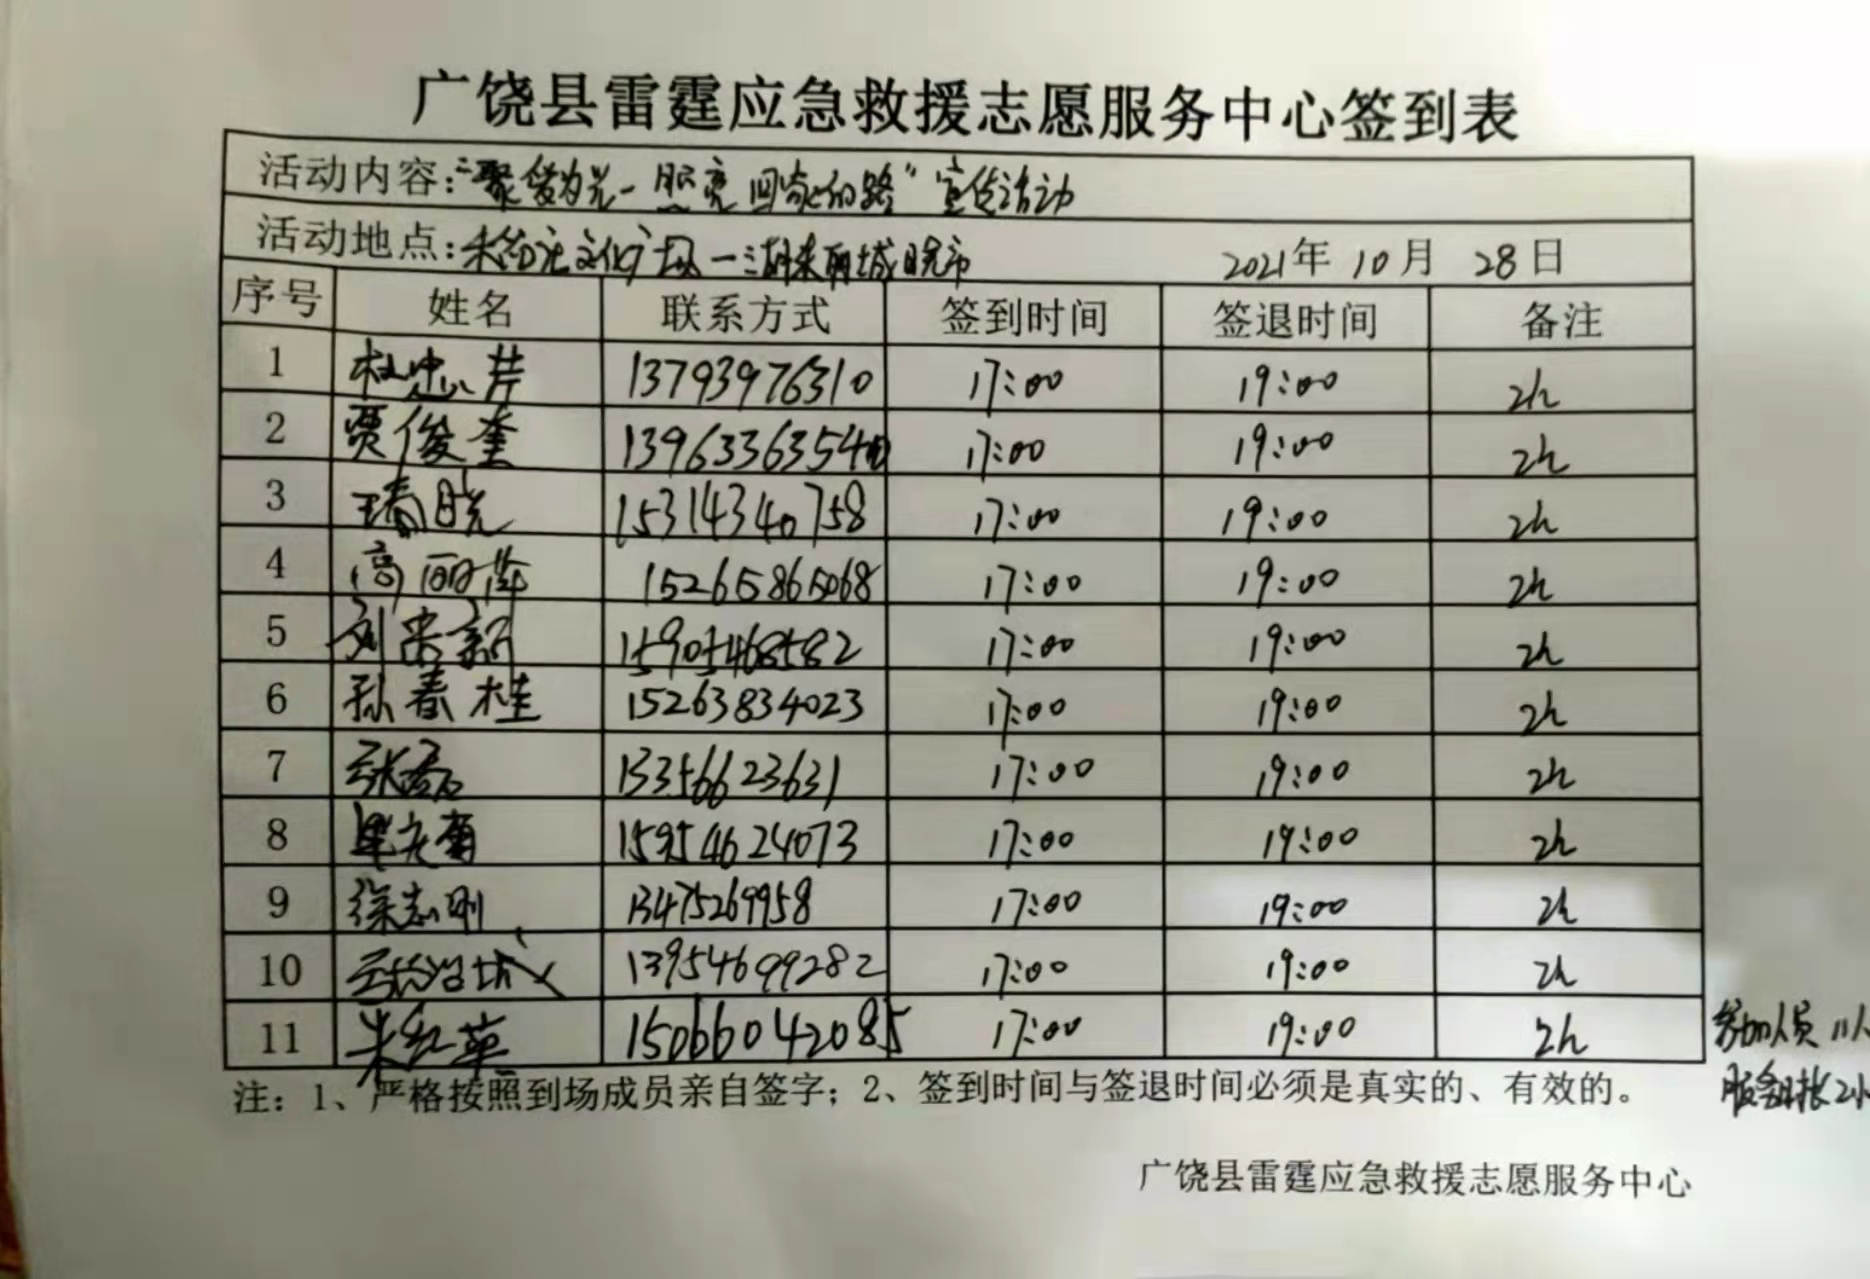 广饶县雷霆应急救援志愿服务中心签到表
活动内容:"聚爱为光一照亮回家的路"宣传活动
活动地点: 文化广场一 城晚市 2021年 10月 28日
序号 姓名 联系方式 签到时间 签退时间 备注
1 杜忠芹 13793976310 17:00 19:00 2h
2 贾俊奎 13963363540 17:00 19:00 2h
3 晓 15314340758 17:00 19:00 2h
4 高丽萍 15265865068 17:00 19:00 2h
5 刘 新 15905468582 17:00 19:00 2h
6 孙春桂 15263834023 17:00 19:00 2h
7 张磊 13356623631 17:00 19:00 2h
8 15954624073 17:00 19:00 2h
9 徐志刚 13475269958 17:00 19:00 2h
10 张 城 13954699282 17:00 19:00 2h
11 朱红英 15066042085 17:00 19:00 2h
参加人员 11人
服务时长 2小
注：1、严格按照到场成员亲自签字；2、签到时间与签退时间必须是真实的、有效的。
广饶县雷霆应急救援志愿服务中心